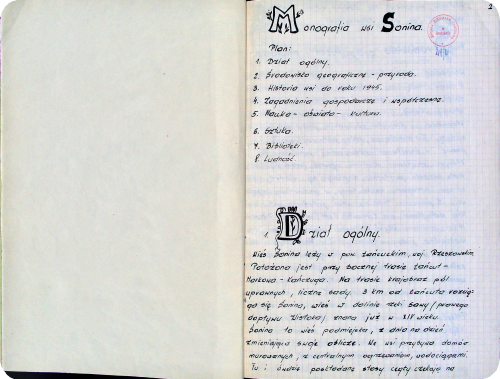 2
Monografia wsi Sonina.
Plan:
1. Dział ogólny.
2. Środowisko geograficzne - przyroda.
3. Historia wsi do roku 1945.
4. Zagadnienia gospodarcze i współczesne.
5. Nauka - oświata - kultura.
6. Sztuka.
7. Biblioteki.
8. Ludność.
1. Dział ogólny.
Wieś Sonina leży w pow. łańcuckim, woj. Rzeszowskim.
Położona jest przy bocznej trasie Łańcut -
Markowa - Kańczuga. Na trasie krajobraz pól
uprawnych, liczne sady. 3 km od Łańcuta rozcią-
ga się Sonina, wieś w dolinie rzeki Sawy /prawego
dopływu Wisłoka/ znana już w XIV wieku.
Sonina to wieś podmiejska, z dnia na dzień
zmieniająca swoje oblicze. We wsi przybywa domów
murowanych, z centralnym ogrzewaniem, wodociągami.
Tu i ówdzie poskładane stosy cegły czekają na